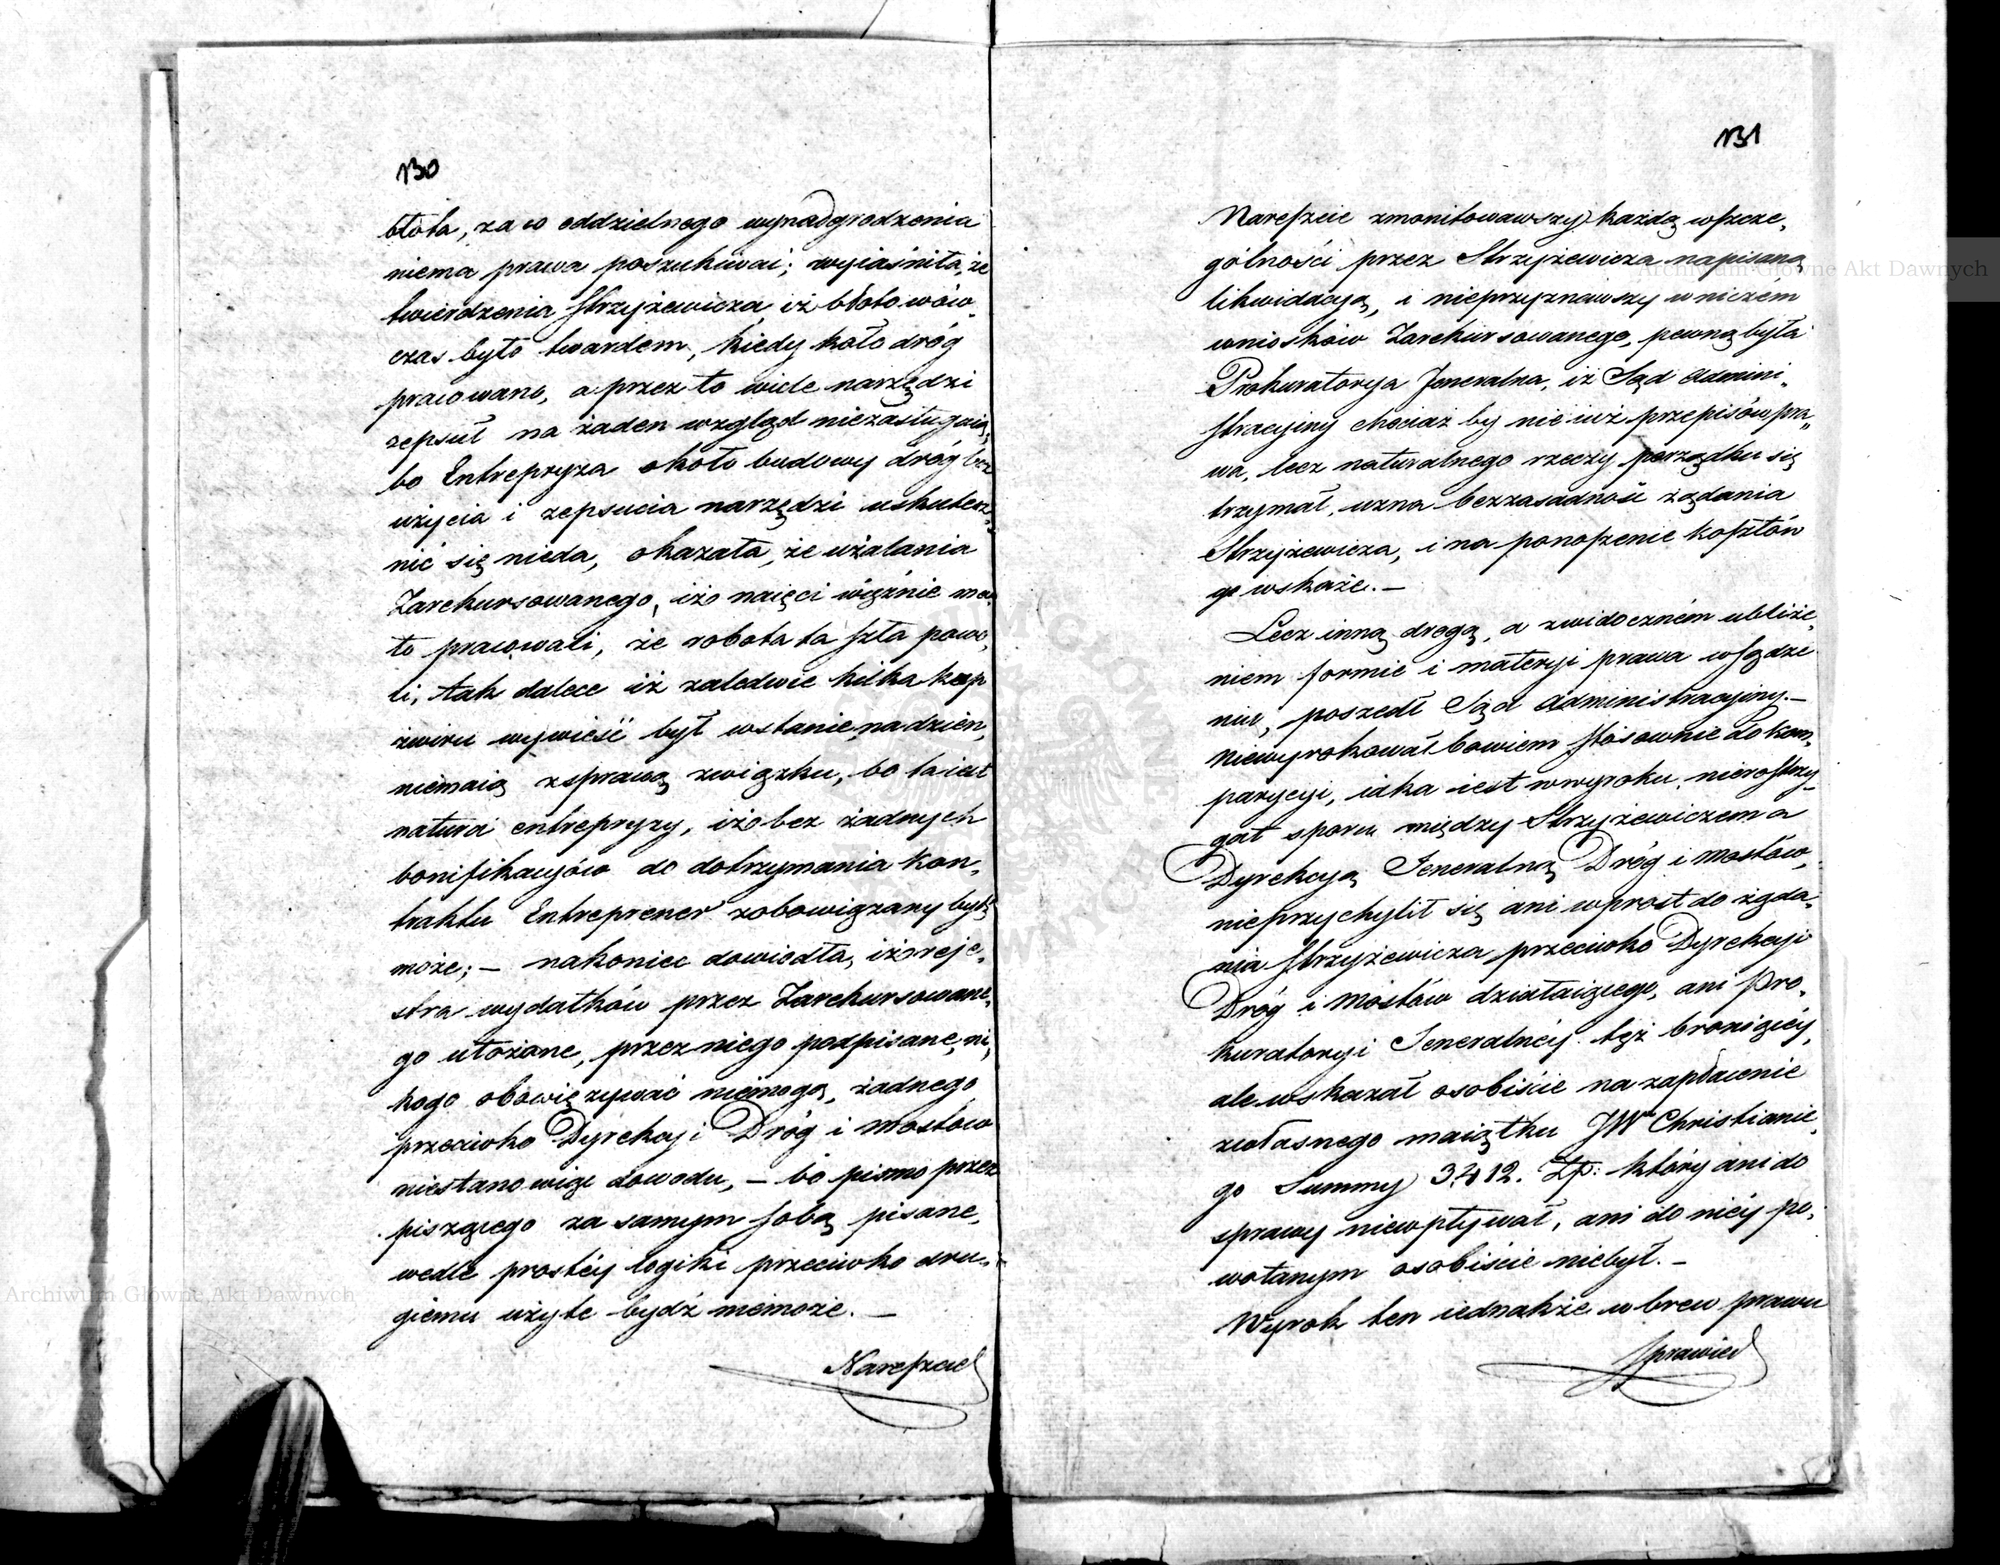 130
błota, za co oddzielnego wynadgrodzenia
niema prawa poszukiwai; wyiaśniła, że
twierdzenia Strzyżewicza iż błoto wów„
czas było twardem, kiedy koło dróg
pracowano, a przez to wiele narzędzi
zepsuł na żaden wzgląd niezasługuią,
bo Entrepryza około budowy dróg bez
użycia i zepsucia narzędzi uskutecz„
nić się nieda, okazała, że użalania
Zarekursowanego, iżo naięci więźnie ma„
ło pracowali, że robota ta szła powo„
li, tak dalece iż zaledwie kilka kup
żwiru wywieść był wstanie na dzień,
niemaią zsprawą związku, bo ta iest
natura entrepryzy, iżo bez żadnych
bonifikacyiów do dotrzymania kon„
traktu Entreprener zobowiązany być
może; — nakoniec dowiodła, iżo reje„
stra wydatków przez Zarekursowane„
go ułożone, przez niego podpisane, ni„
kogo obowięzywać niemogą, żadnego
przeciwko Dyrekcyi Dróg i Mostów
niestanowiąc dowodu, — bo pismo przez
piszącego za samym sobą pisane,
wedle prostéy logiki przeciwko dru„
giemu użyte bydź niemoże. —
Nareszcie
131
Nareszcie zmonitowawszy każdą wszcze„
gólności przez Strzyżewicza napisaną
likwidacyą, i nieprzyznawszy w niczém
wniosków Zarekursowanego, pewną była
Prokuratorya Jeneralna, iż Sąd Admini„
stracyiny chociaż by nie iuż przepisów pra„
wa, lecz naturalnego rzeczy porządku się
trzymał, uzna bezzasadność żądania
Strzyżewicza, i na ponoszenie kosztów
go wskaże. —
Lecz inną drogą, a zwidoczném ubliże„
niem formie i materyi prawa wsądze„
niu, poszedł Sąd Administracyiny. —
Niewyrokował bowiem stósownie do kom„
parycyi, iaka iest w wyroku, nierostrzy„
gał sporu między Strzyżewiczem a
Dyrekcyą Jeneralną Dróg i Mostów,
nieprzychylił się ani wprost do żąda„
nia Strzyżewicza przeciwko Dyrekcyi
Dróg i Mostów działaiącego, ani Pro„
kuratoryi Jeneralnéy téż broniącéy,
ale wskazał osobiście na zapłacenie
zwłasnego maiątku JW Christianie„
go Summy 3,412. Zł: który ani do
sprawy niewpływał, ani do niéy po„
wołanym osobiście niebył. —
Wyrok ten iednakże wbrew prawu
Sprawied
Archiwum Główne Akt Dawnych
Archiwum Główne Akt Dawnych